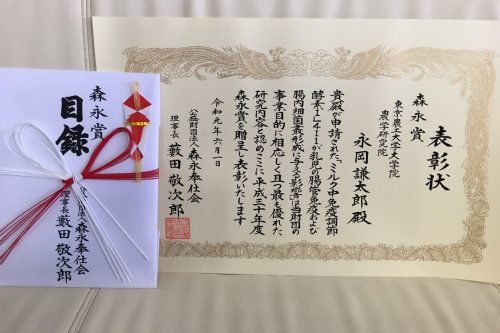 表彰状
森永賞
東京農工大学大学院
農学研究院
永岡謙太郎殿
貴殿の申請された、ミルク中免疫調節
酵素・L4i1が乳児の腸管免疫および
腸内細菌叢形成に与える影響は当財団の
事業目的に相応しく且つ最も優れた
研究内容と認めここに平成三十年度
森永賞を贈呈し表彰いたします
令和元年六月一日
公益財団法人森永奉仕会
理事長 藪田敬次郎
森永賞
目録
法人森永奉仕会
理事長 藪田敬次郎